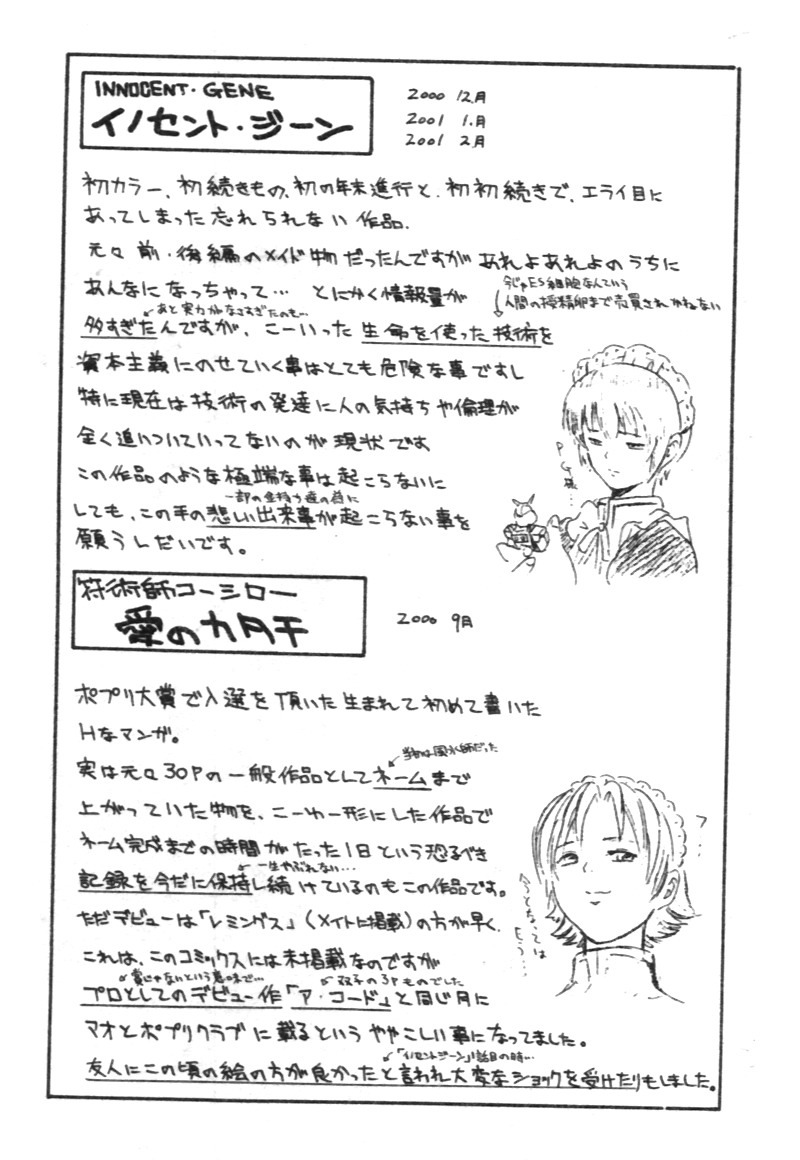 INNOCENT・GENE
イノセント・ジーン
2000 12月
2001 1月
2001 2月
初カラー、初続きもの、初の年末進行と、初初続きで、エライ目に
あってしまった忘れられない作品.
元々前・後編のメイド物だったんですがあれよあれよのうちに
あんなになっちゃって… とにかく情報量が
今じゃES細胞なんていう
人間の授精卵まで売買されかねない
あと実力がなさすぎたのも…
多すぎたんですが、こーいった生命を使った技術を
資本主義にのせていく事はとても危険な事ですし
特に現在は技術の発達に人の気持ちや倫理が
全く追いついていってないのが現状です
この作品のような極端な事は起こらないに
一部の金持ち達の為に
しても、この手の悲しい出来事が起こらない事を
願うしだいです。
符術師コーシロー
愛のカタチ
2000 9月
ポプリ大賞で入選を頂いた生まれて初めて書いた
Hなマンガ。
当初は風水師だった
実は元々30Pの一般作品としてネームまで
上がっていた物を、こーゆー形にした作品で
ネーム完成までの時間がたった1日という恐るべき
一生やぶれない…
記録を今だに保持し続けているのもこの作品です。
ただデビューは「レミングス」(メイトに掲載)の方が早く、
これは、このコミックスには未掲載なのですが
賞じゃないという意味で…
双子の3Pものでした
プロとしてのデビュー作「ア・コード」と同じ月に
マオとポプリクラブに載るというややこしい事になってました。
「イノセントジーン」1話目の時…
友人にこの頃の絵の方が良かったと言われ大変なショックを受けたりもしました。